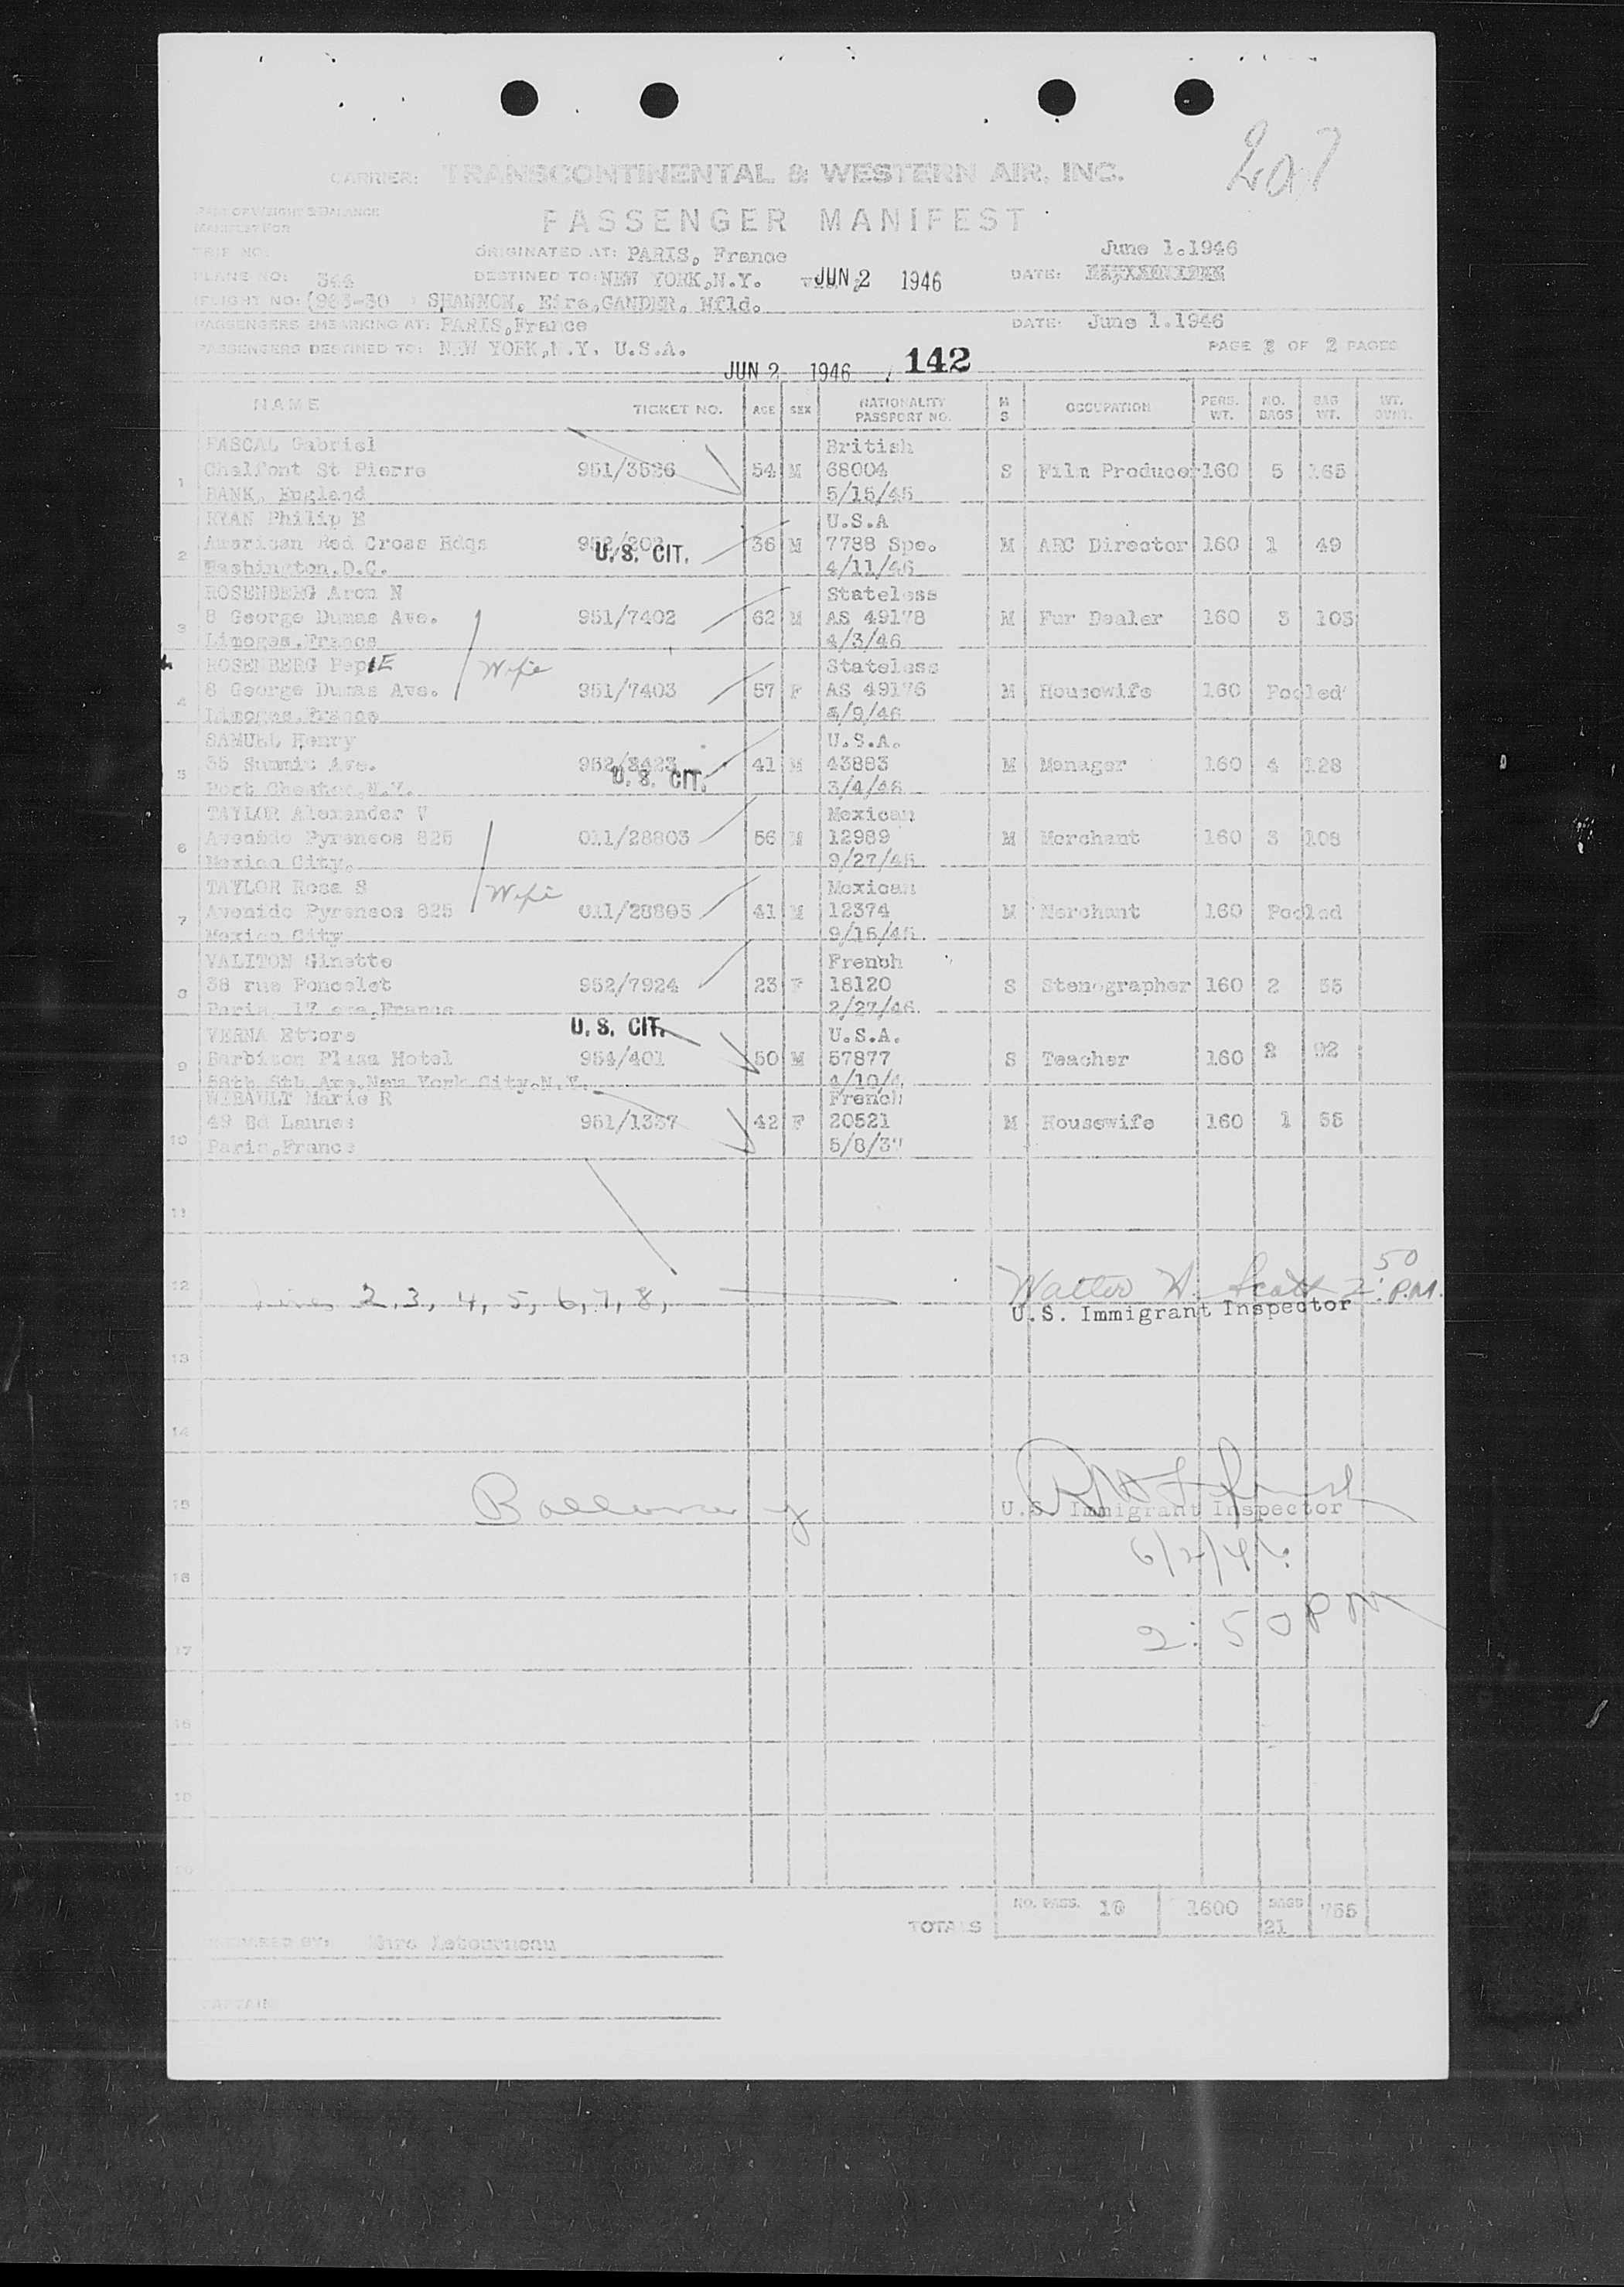 207
CARRIER: TRANSCONTINENTAL & WESTERN AIR, INC.
PART OF WEIGHT & BALANCE
MANIFEST FOR
PASSENGER MANIFEST
TRIP NO:
ORIGINATED AT: PARIS, France
June 1.1946
PLANE NO: 344
DESTINED TO: NEW YORK, N.Y. JUN 2 1946
DATE:
FLIGHT NO: (963-30 ) SHANNON, Eire, GANDER, Nfld.
PASSENGERS EMBARKING AT: PARIS, France
DATE: June 1.1946
PASSENGERS DESTINED TO: NEW YORK, N.Y. U.S.A.
PAGE 2 OF 2 PAGES
JUN 2 1946 142
NAME TICKET NO. AGE SEX NATIONALITY PASSPORT NO. M S OCCUPATION PERS. WT. NO. BAGS BAG WT.
PASCAL Gabriel British
1 Chalfont St Pierre 951/3526 54 M 68004 S Film Producer 160 5 165
BANK, England 5/15/45
RYAN Philip E U.S.A
2 American Red Cross Hdqs U.S. CIT. 36 M 7788 Spe. M ARC Director 160 1 49
Washington, D.C. 4/11/46
ROSENBERG Aron N Stateless
3 8 George Dumas Ave. 951/7402 62 M AS 49178 M Fur Dealer 160 3 103
Limoges, France 4/3/46
ROSENBERG PepIE Wife Stateless
4 8 George Dumas Ave. 951/7403 57 F AS 49176 M Housewife 160 Pooled
Limoges, France 4/9/46
SAMUEL Henry U.S.A.
5 35 Summit Ave. 952/3423 U.S. CIT. 41 M 43883 M Manager 160 4 128
Port Chester, N.Y. 3/4/46
TAYLOR Alexander V Mexican
6 Avenido Pyreneos 825 011/28803 56 M 12989 M Merchant 160 3 108
Mexico City, 9/27/45
TAYLOR Rosa S Wife Mexican
7 Avenido Pyreneos 825 011/28805 41 M 12374 M Merchant 160 Pooled
Mexico City 9/15/45
VALITON Ginette French
8 38 rue Poncelet 952/7924 23 F 18120 S Stenographer 160 2 55
Paris, 17 eme, France 2/27/46
VERNA Ettore U.S. CIT. U.S.A.
9 Barbizon Plaza Hotel 954/401 50 M 57877 S Teacher 160 2 92
58th 6th Ave, New York City, N.Y. 4/10/4
Marie R French
10 49 Bd Lannes 951/1357 42 F 20521 M Housewife 160 1 55
Paris, France 5/8/3
11
12
Lines 2, 3, 4, 5, 6, 7, 8,
Walter W. Scott 2:50 P.M.
U.S. Immigrant Inspector
13
14
15
U.S. Immigrant Inspector
6/2/46
16
2:50 PM
17
18
19
20
TOTALS NO. PASS. 10 1600 BAGS 21 755
PREPARED BY: Marc Letourneau
CAPTAIN